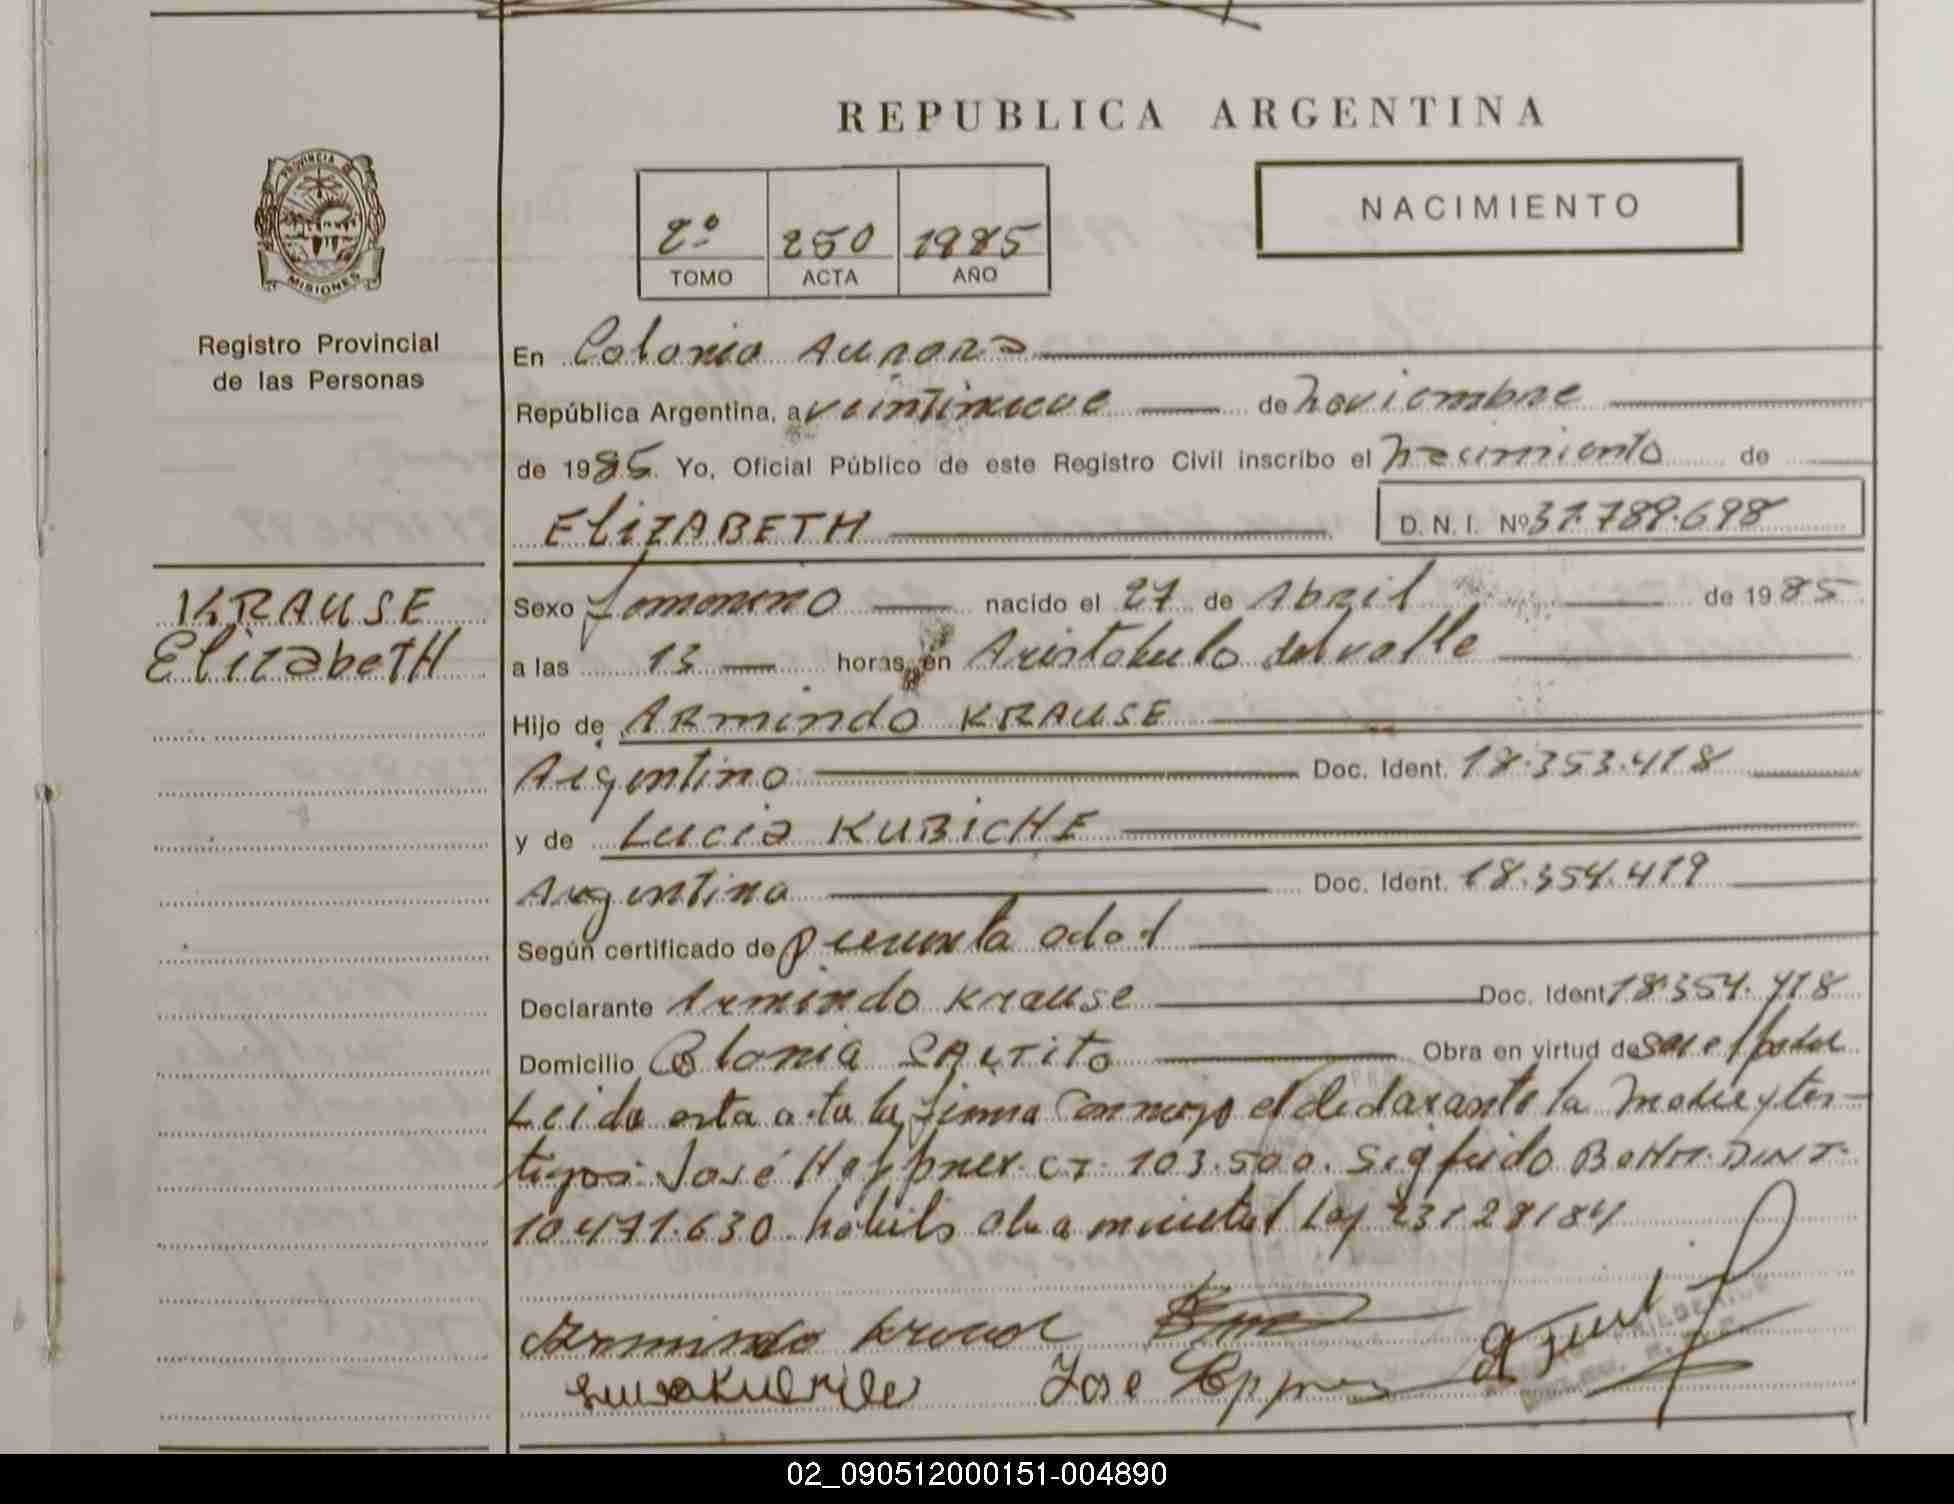 REPUBLICA ARGENTINA
NACIMIENTO
2º 250 1985
TOMO ACTA AÑO
PROVINCIA DE
MISIONES
Registro Provincial
de las Personas
KRAUSE
ElizabetH
En Colonia Aurora
República Argentina, a veintinueve de noviembre
de 1985. Yo, Oficial Público de este Registro Civil inscribo el nacimiento de
ElizABETH D. N. I. Nº 31.789.698
Sexo femenino nacido el 27 de Abril de 1985
a las 13 horas en Aristobulo del valle
Hijo de ARmindo KRAUSE
Argentino Doc. Ident. 18.353.418
y de Lucia KUBicHE
Argentina Doc. Ident. 18.354.419
Según certificado de presunta edad
Declarante Armindo Krause Doc. Ident 18.354.418
Domicilio Colonia SALTITO Obra en virtud de
Leida esta acta la firma conmigo el declarante la madre y tes-
tigos: José Heppner CI. 103.500. Sigfrido BOHM. DNI
10.471.630 habils Ley 23128/84
Armindo Krause
Jose Eppner
02_090512000151-004890